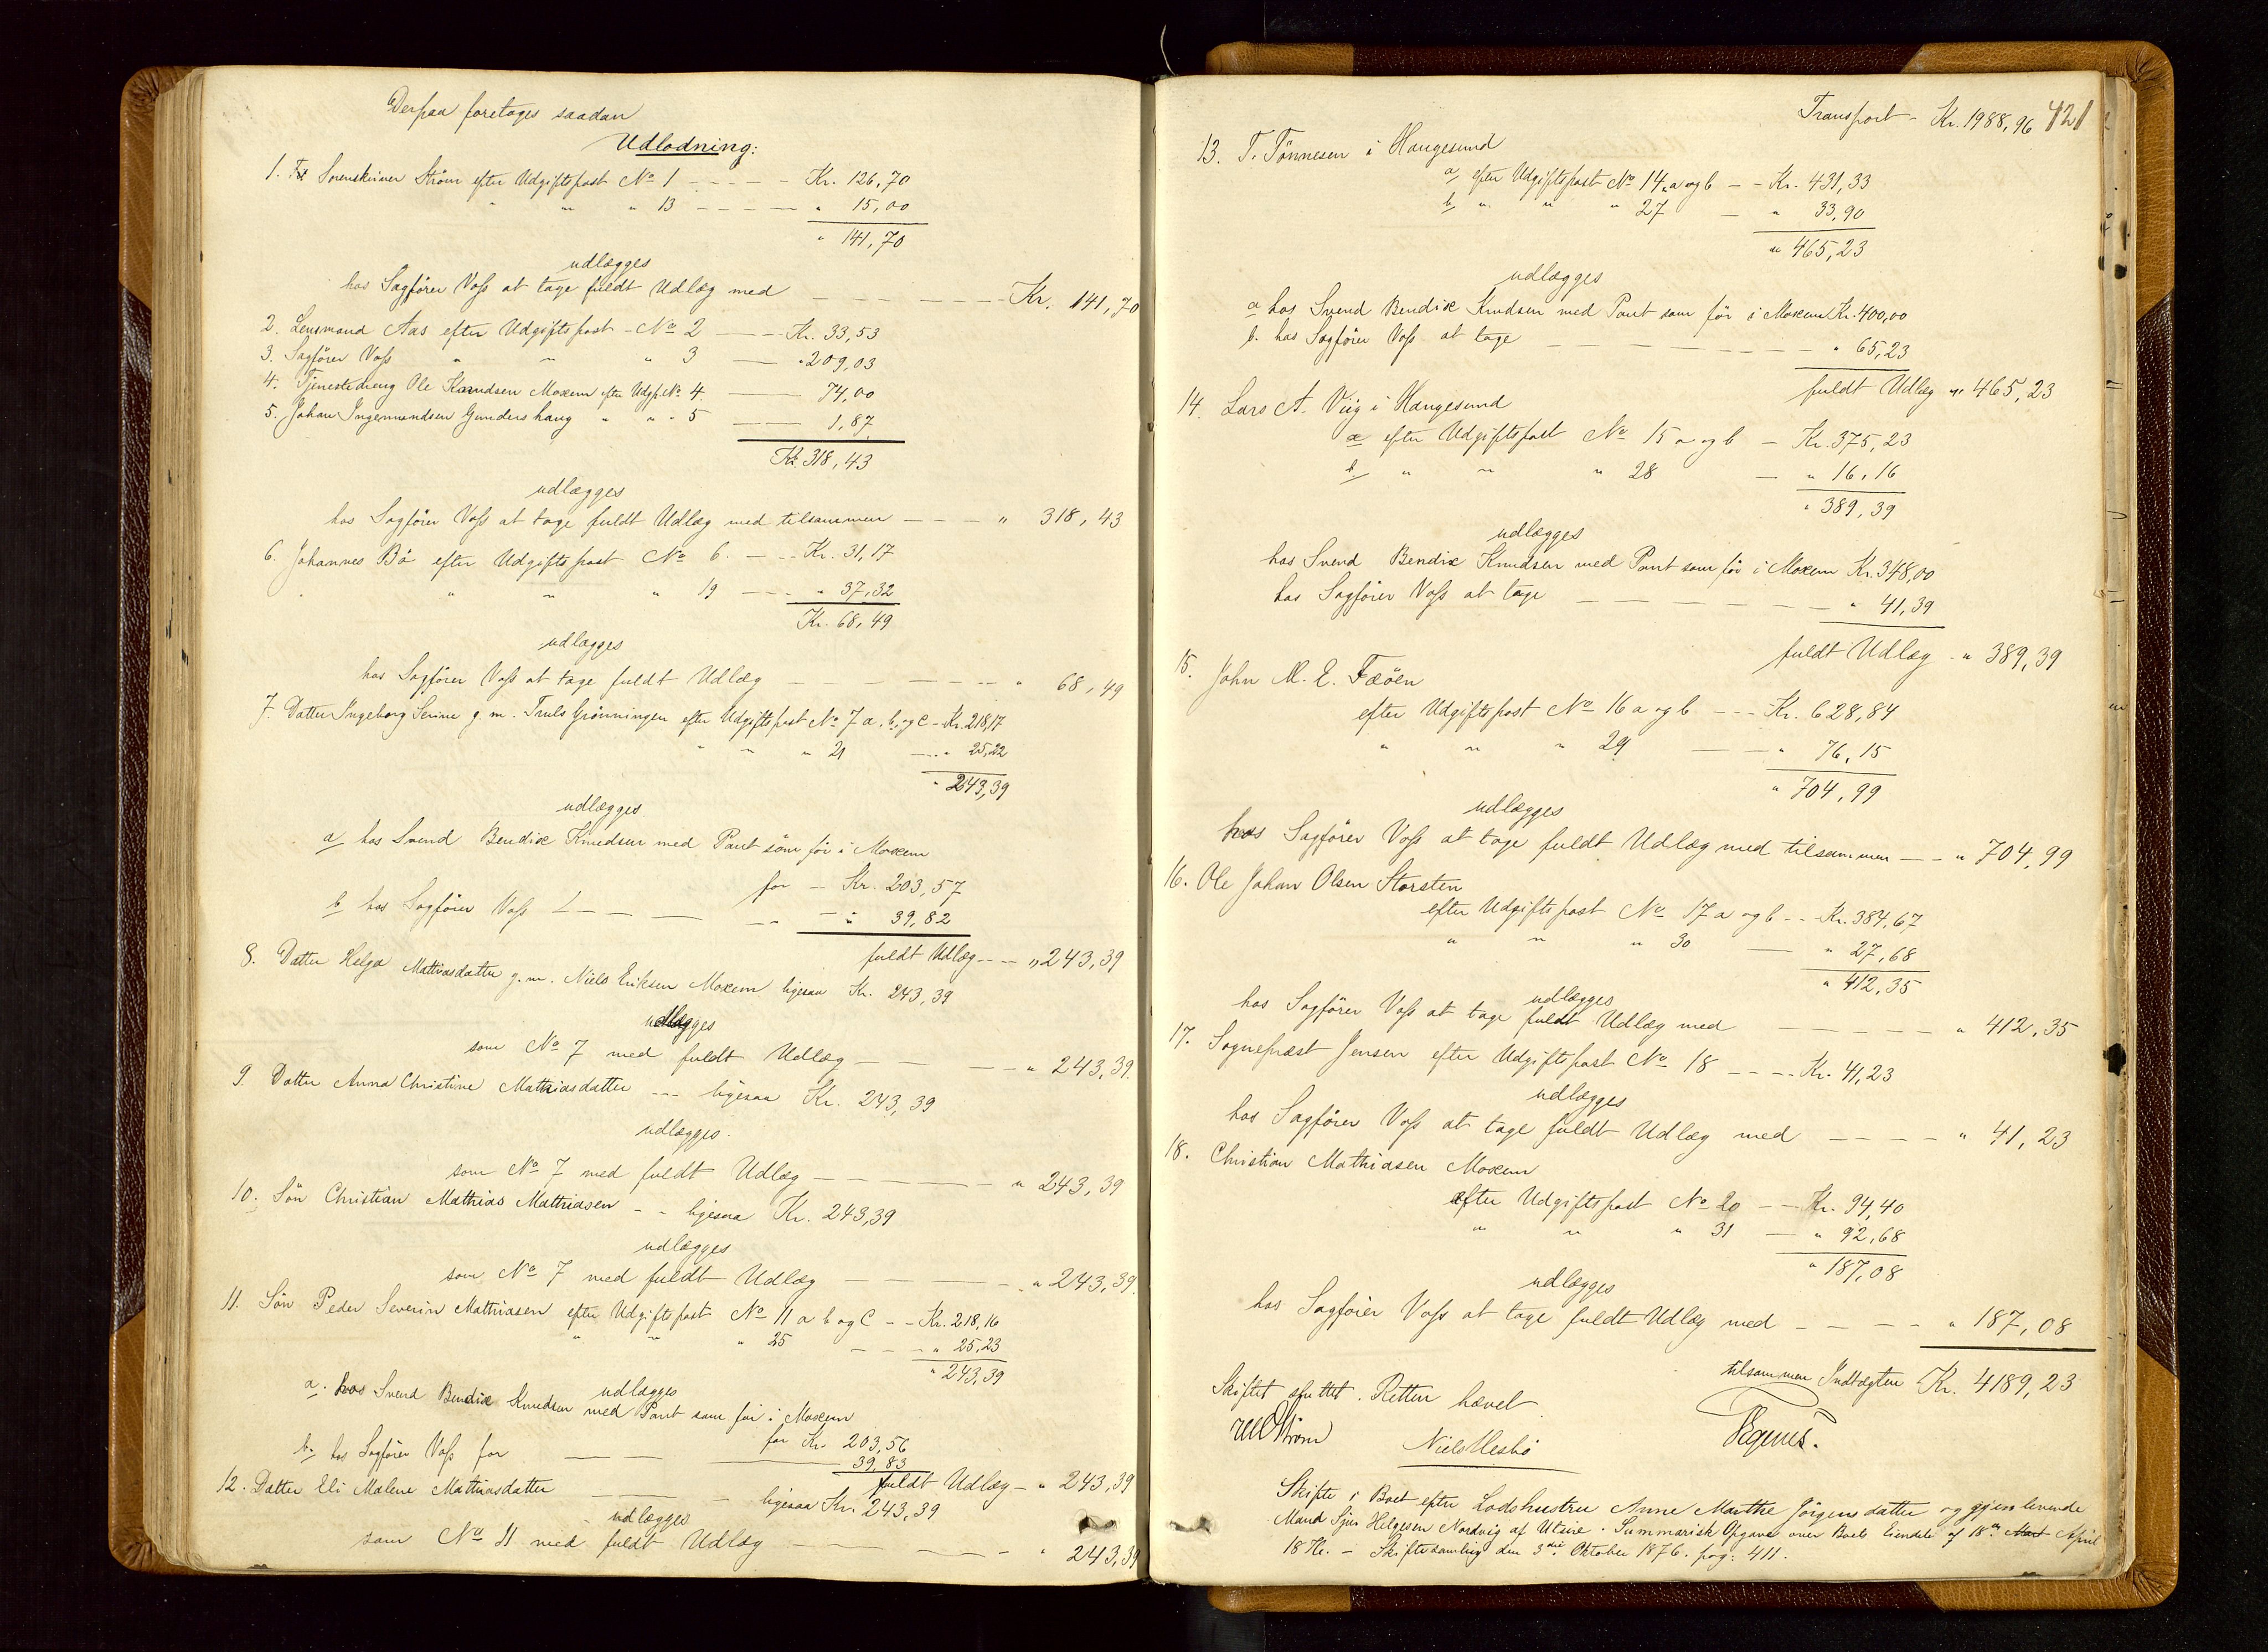 Derpaa foretages saadan
Udlodning:
1. Sorenskriver Strøm efter Udgiftspost No 1 - - - - - Kr. 126,70
" " " 13 - - - - - " 15,00
" 141,70
udlægges
hos Sagfører Voss at tage fuldt Udlæg med - - - - - - Kr. 141,70
2. Lensmand Aas efter Udgiftspost - No 2 - - - Kr. 33,53
3. Sagfører Voss " " " 3 - - " 209,03
4. Tjenestedreng Ole Knudsen Moxem efter Udgp. No 4. - - 74,00
5. Johan Ingemundsen Gundershaug " " " 5 - - 1,87
Kr. 318,43
udlægges
hos Sagfører Voss at tage fuldt Udlæg med tilsammen - - - " 318,43
6. Johannes Bö efter Udgiftspost No 6. - - - Kr. 31,17
" " " 19 - - - " 37,32
Kr. 68,49
udlægges
hos Sagfører Voss at tage fuldt Udlæg - - - - - - " 68,49
7. Datter Ingeborg Serine g. m. Truls Grønningen efter Udgiftspost No 7 a, b, og c - Kr. 218,17
" " " 21 - - - " 25,22
" 243,39
udlægges
a hos Svend Bendix Knudsen med Pant som før i Moxem
for - Kr. 203,57
b hos Sagfører Voss - - - - - - - " 39,82
fuldt Udlæg - - - " 243,39
8. Datter Helga Mathiasdatter g. m. Niels Eriksen Moxem ligesaa Kr. 243,39
udlægges
som No 7 med fuldt Udlæg - - - - " 243,39.
9. Datter Anna Christine Mathiasdatter - - - ligesaa Kr. 243,39
udlægges.
som No 7 med fuldt Udlæg - - - - - - " 243,39
10. Søn Christian Mathias Mathiasen - - ligesaa Kr. 243,39
udlægges
som No 7 med fuldt Udlæg - - - - - - " 243,39.
11. Søn Peder Severin Mathiasen efter Udgiftspost No 11 a b og c - - Kr. 218,16
" " " 25 - - - " 25,23
" 243,39
udlægges
a. hos Svend Bendix Knudsen med Pant som før i Moxem
for Kr. 203,56
b. hos Sagfører Voss for - - - 39,83
fuldt Udlæg - " 243,39
12. Datter Eli Malene Mathiasdatter - - - ligesaa Kr. 243,39
udlægges
som No 11 med fuldt Udlæg - - - - - " 243,39
421
Transport - Kr. 1988,96
13. T. Tönnesen i Haugesund
a, efter Udgiftspost No 14, a og b - - Kr. 431,33
b " " " 27 - " 33,90
" 465,23
udlægges
a hos Svend Bendix Knudsen med Pant som før i Moxem Kr. 400,00
b. hos Sagfører Voss at tage - - - - - - - - " 65,23
fuldt Udlæg " 465,23
14. Lars A. Viig i Haugesund
a efter Udgiftspost No 15 a og b - Kr. 375,23
b " " " 28 - " 16,16
" 389,39
udlægges
hos Svend Bendix Knudsen med Pant som før i Moxem Kr. 348,00
hos Sagfører Voss at tage - - - - - - - " 41,39
fuldt Udlæg - " 389,39
15. John M. E. Fæöen
efter Udgiftspost No 16 a og b - - - Kr. 628,84
" " " 29 - - " 76,15
" 704,99
udlægges
hos Sagfører Voss at tage fuldt Udlæg med tilsammen - - " 704,99
16. Ole Johan Olsen Storsten
efter Udgiftspost No 17 a og b - - Kr. 384,67
" " " 30 - " 27,68
" 412,35
udlægges
hos Sagfører Voss at tage fuldt Udlæg med - - - - - " 412,35
17. Sogneprest Jensen efter Udgiftspost No 18 - - - - Kr. 41,23
udlægges
hos Sagfører Voss at tage fuldt Udlæg med - - - - " 41,23
18. Christian Mathiasen Moxem
efter Udgiftspost No 20 - - Kr. 94,40
" " " 31 - " 92,68
" 187,08
udlægges
hos Sagfører Voss at tage fuldt Udlæg med - - - - " 187,08
tilsammen Indtægten Kr. 4189,23
Skiftet sluttet. Retten hævet
Strøm Niels Vesbö
Skifte i Boet efter Lodshustru Anne Marthe Jörgensdatter og gjenlevende
Mand Sjur Helgesen Nordvig af Utsire. Summarisk Opgave over Boets Eiendele af 18de Mart April
1876. - Skiftesamling den 3die Oktober 1876. pag: 411.